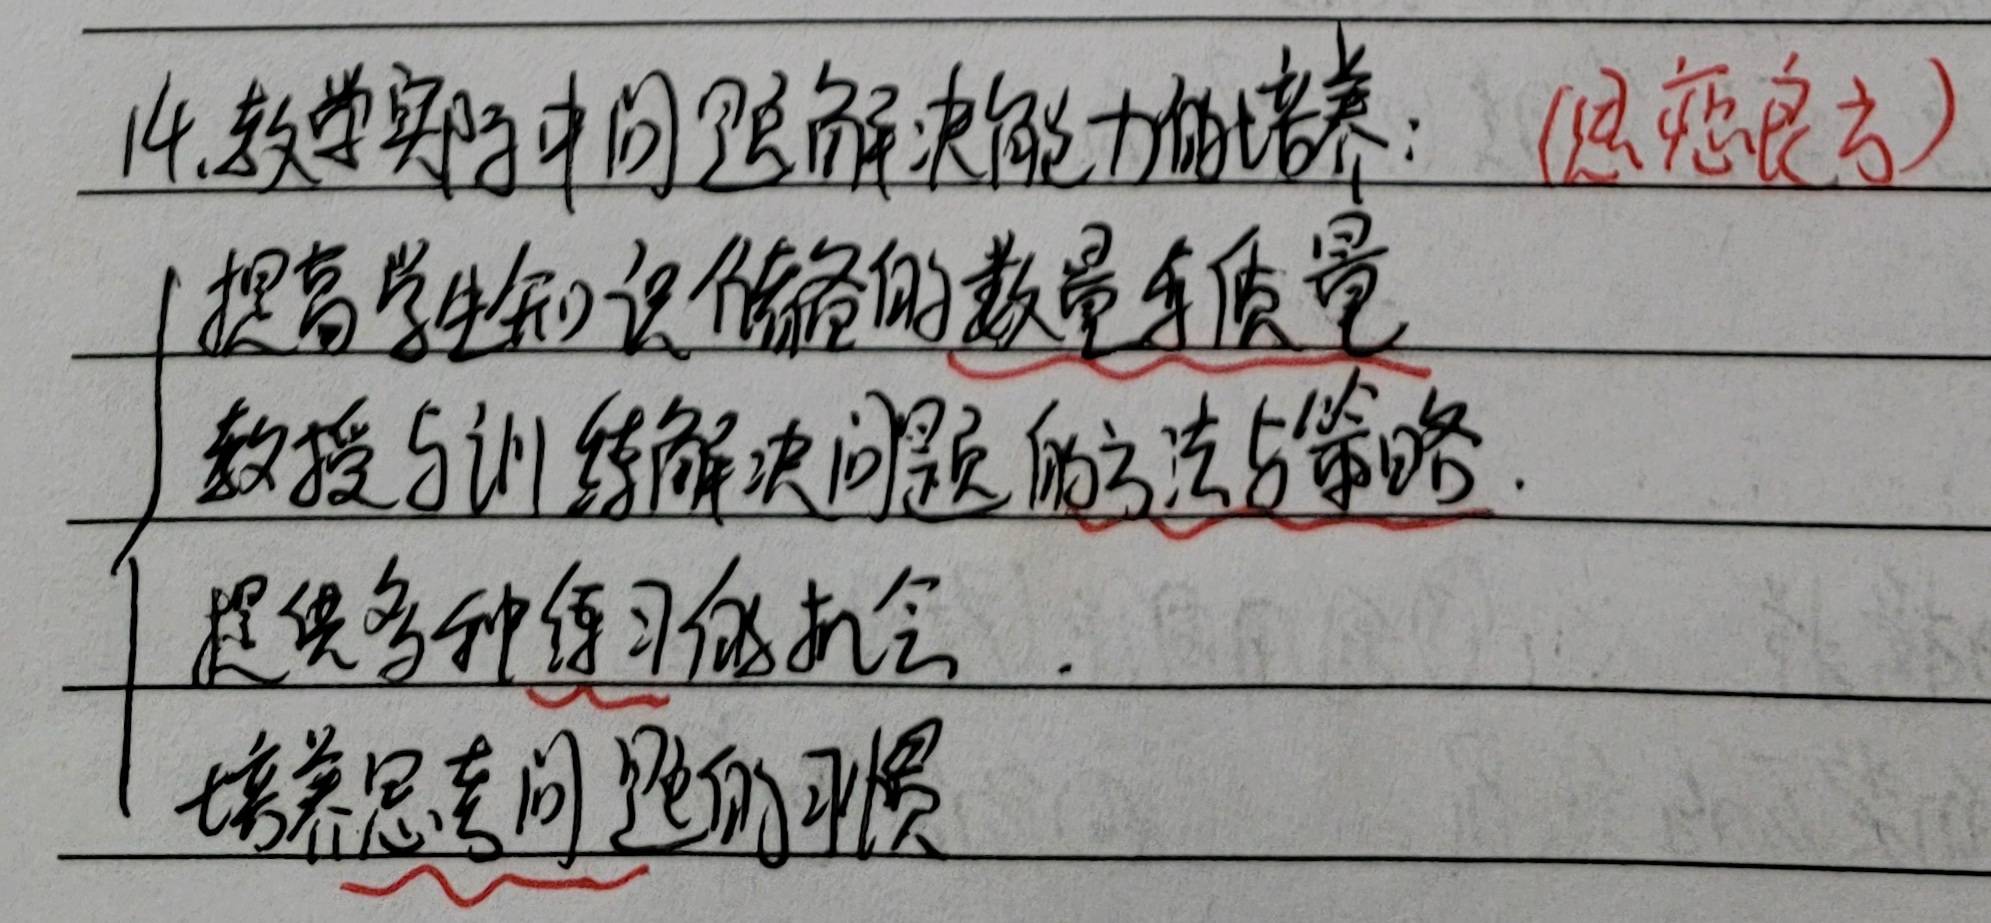 14.教学实际中问题解决能力的培养：（思恋良方）
提高学生知识储备的数量与质量
教授与训练解决问题的方法与策略.
提供多种练习的机会.
培养思考问题的习惯